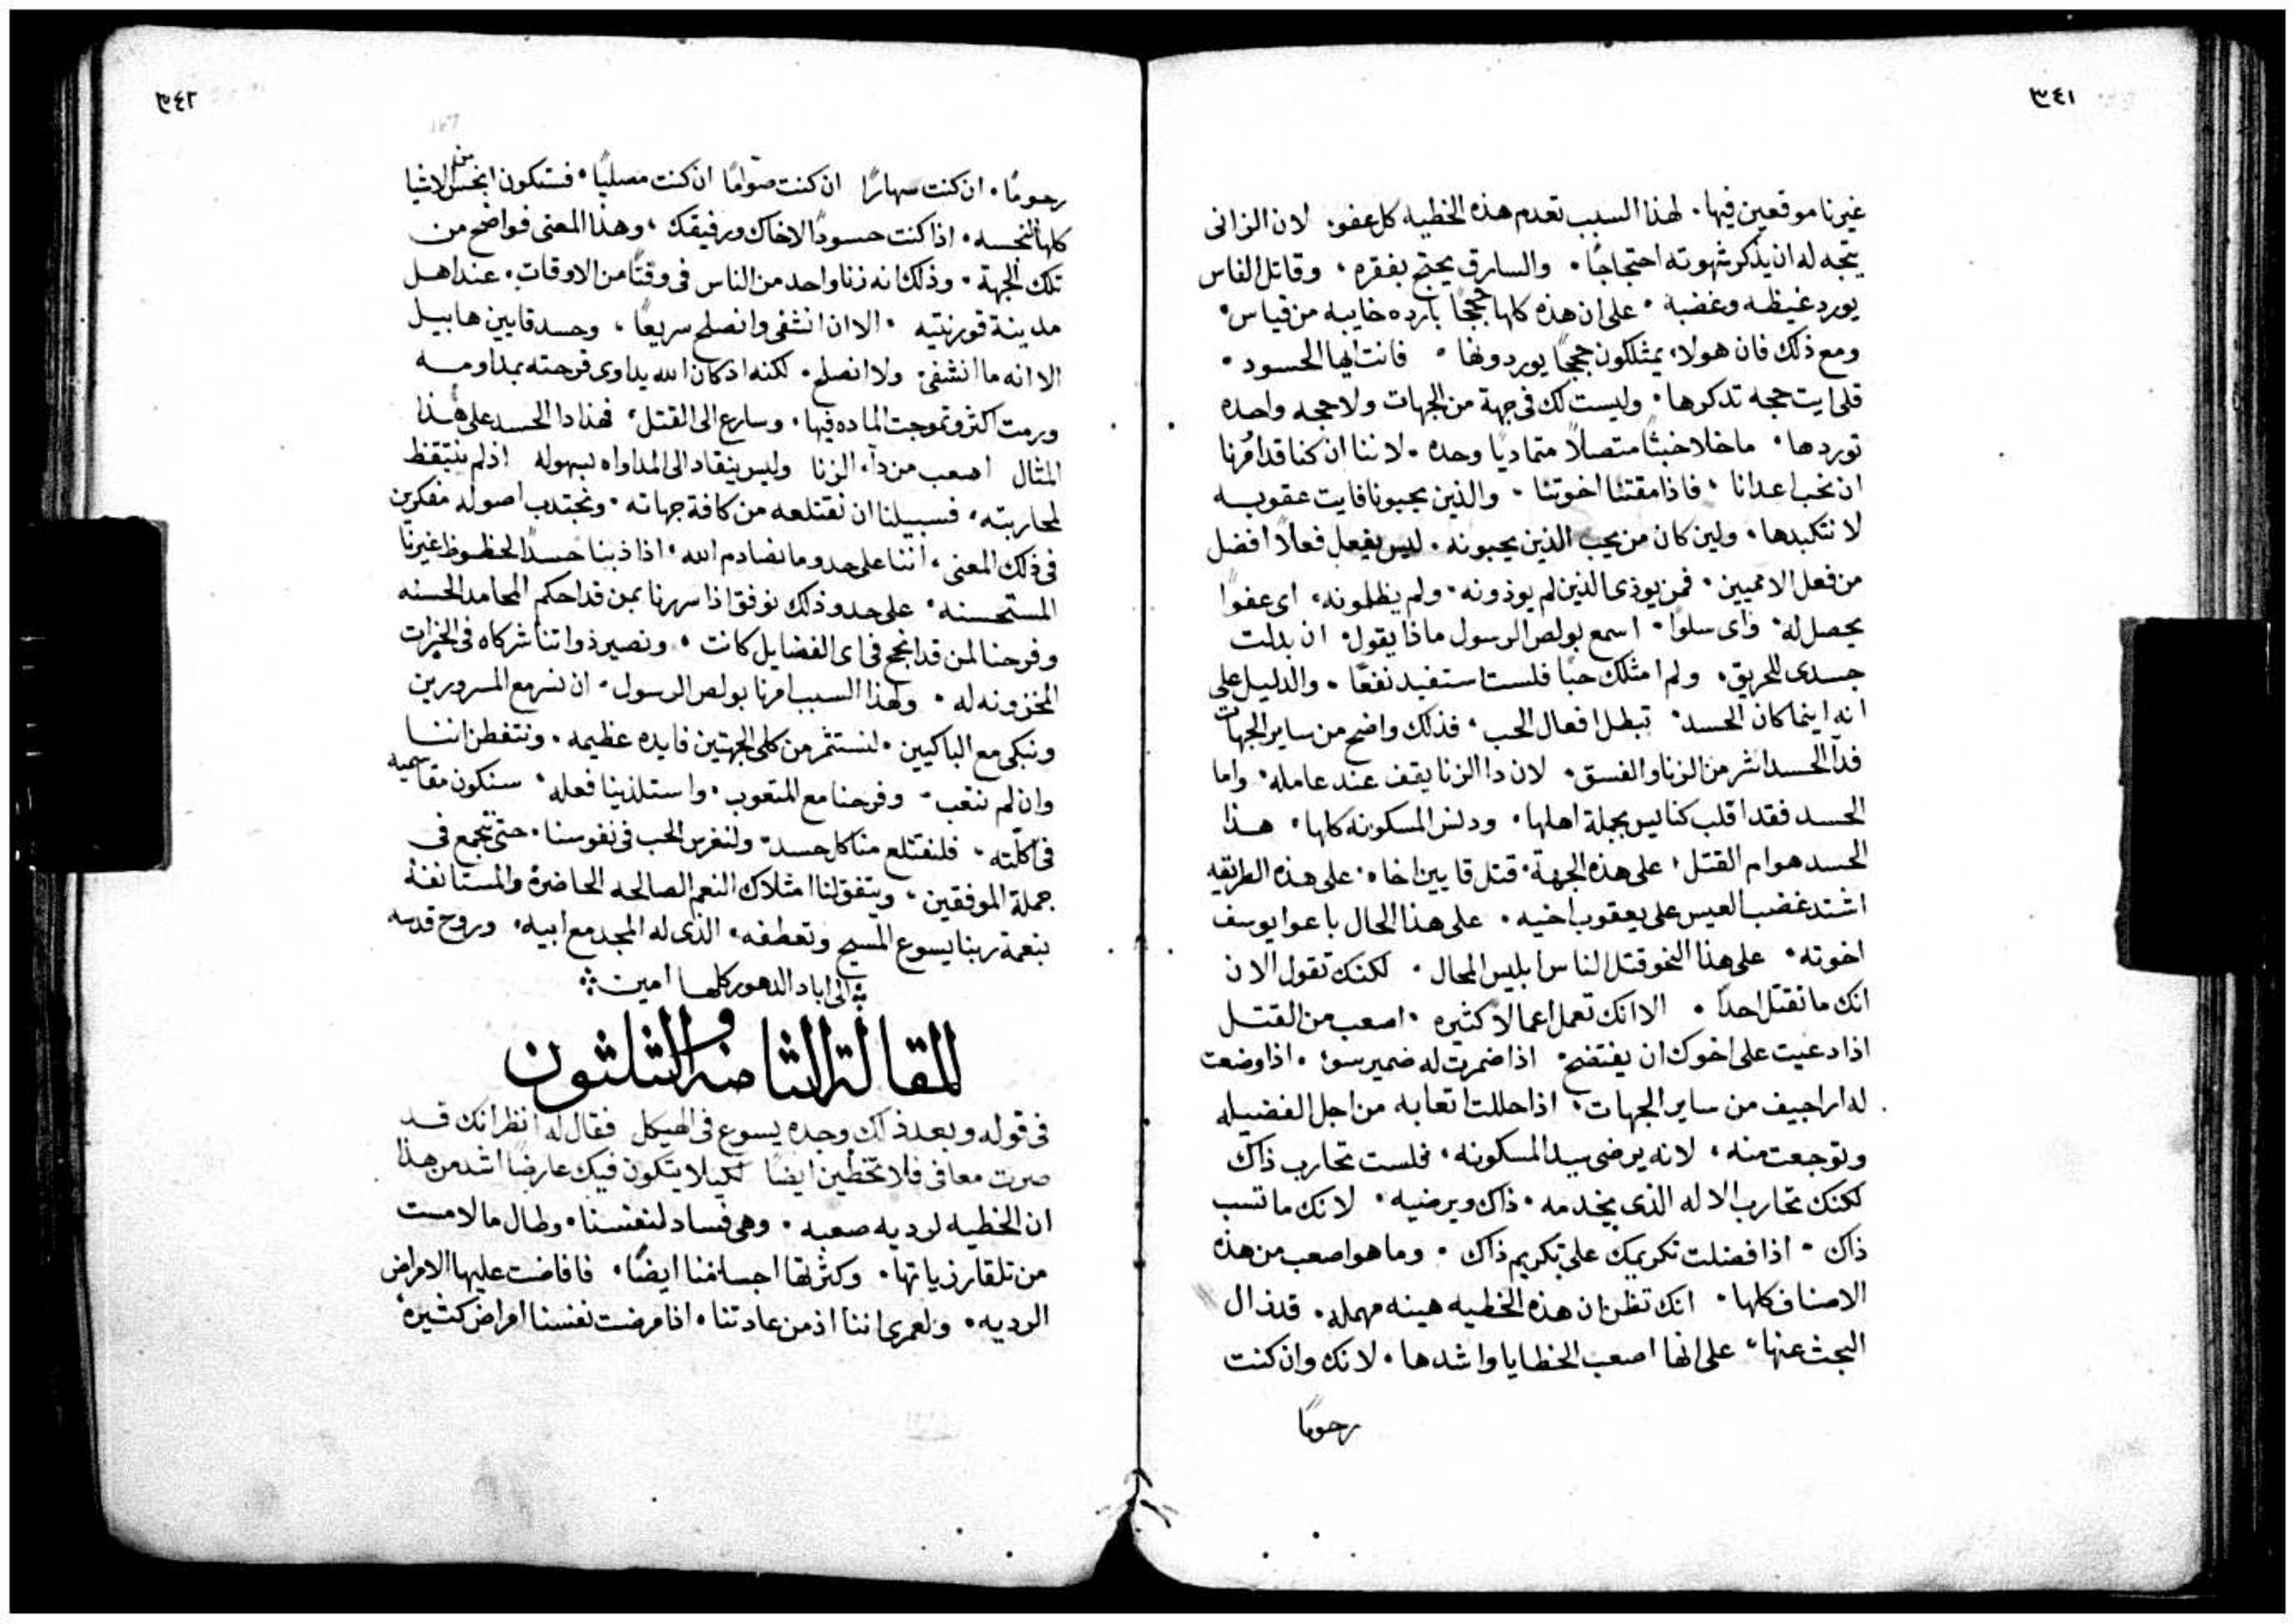 ٣٤١
غيرنا موقعين فيها. لهذا السبب تعدم هذه الخطيه كل عفو. لان الزانى
يتجه له ان يذكر شهوته احتجاجًا. والسارق يحتج بفقره. وقاتل الناس
يورد غيظه وغضبة. على ان هذه كلها حججًا بارده خايبه من قياس.
ومع ذلك فان هولاء يمتلكون حججًا يوردونها. فانت ايها الحسود.
قلى ايت حجه تدكرها. وليست لك فى جهة من الجهات ولا حجه واحده
توردها. ما خلا خبثًا متصلاً متماديًا وحده. لاننا ان كنا قد امُرنا
ان نحب اعدانا. فاذا مقتنا اخوتنا. والذين يحبونا فايت عقوبه
لا نتكبدها. ولين كان من يحب الذين يحبونه. ليس يفعل فعلاً افضل
من فعل الامميين. فمن يوذى الذين لم يوذونه. ولم يظلمونه. اى عفوًا
يحصل له. واى سلوًا. اسمع بولص الرسول ماذا يقول. ان بدلت
جسدى للحريق. ولم امتلك حبًا فلست استفيد نفعًا. والدليل على
انه اينما كان الحسد. تبطل افعال الحب. فذلك واضح من ساير الجهات
فدآ الحسد اشر من الزنا والفسق. لان دا الزنا يقف عند عامله. واما
الحسد فقد اقلب كنايس بجملة اهلها. ودنس المسكونه كلها. هذا
الحسد هو ام القتل. على هذه الجهة. قتل قايين اخاه. على هذه الطريقه
اشتد غضب العيس على يعقوب اخيه. على هذا الحال باعوا يوسف
اخوته. على هذا النحو قتل الناس ابليس المحال. لكنك تقول الان
انك ما تقتل احدًا. الا انك تعمل اعمالاً كثيره. اصعب من القتل
اذا دعيت على اخوك ان يفتضح. اذا ضمرت له ضمير سوء. اذا وضعت
له اراجيف من ساير الجهات. اذا حللت اتعابه من اجل الفضيله
وتوجعت منه. لانه يرضى سيد المسكونه. فلست تحارب ذاك
لكنك تحارب الاله الذى يخدمه. ذاك ويرضيه. لانك ما تسب
ذاك. اذا فضلت تكريمك على تكريم ذاك. وما هو اصعب من هذه
الاصناف كلها. انك تظن ان هذه الخطيه هينه مهمله. قد زال
البحث عنها. على انها اصعب الخطايا واشدها. لانك وان كنت
رحومًا
٣٤٢
رحومًا. ان كنت سهارًا ان كنت صوامًا ان كنت مصليًا. فستكون انجس من الاشيا
كلها النجسه. اذا كنت حسودًا لاخاك ورفيقك. وهذا المعنى فواضح من
تلك الجهة. وذلك انه زنا واحد من الناس فى وقتًا من الاوقات. عند اهل
مدينة قورنتيه. الا ان انشفى وانصلح سريعًا. وحسد قايين هابيل
الا انه ما انشفى. ولا انصلح. لكنه اذ كان الله يداوى قرحته بمداومه
ورمت اكثر وتموجت الماده فيها. وسارع الى القتل. فهذا دا الحسد على هذا
المثال اصعب من دآء الزنا وليس ينقاد الى المداواه بسهوله اذ لم نتيقظ
لمحاربته. فسبيلنا ان نقتلعه من كافة جهاته. ونجتدب اصوله مفكرين
فى ذلك المعنى. اننا على حدو ما نصادم الله. اذا ذبنا حسدًا لحظوظ غيرنا
المستحسنه. على حدو ذلك نوفق اذا سررنا بمن قد احكم المحامد الحسنه
وفرحنا لمن قد انجح فى اى الفضايل كانت. ونصير ذواتنا شركاه فى الخيرات
المخزونه له. ولهذا السبب امرنا بولص الرسول. ان نسر مع المسرورين
ونبكى مع الباكيين. لنستثمر من كلى الجهتين فايده عظيمه. ونتفطن اننا
وان لم نتعب. وفرحنا مع المتعوب. واستلذينا فعله. سنكون مقاسميه
فى اكلته. فلنقتلع منا كل حسد. ولنغرس الحب فى نفوسنا. حتى نتجمع فى
جملة الموفقين. ويتفق لنا امتلاك النعم الصالحه الحاضرة والمستانفة
بنعمة ربنا يسوع المسيح وتعطفه. الذى له المجد مع ابيه. وروح قدسه
الى اباد الدهور كلها امين
المقالة الثامنه والثلثون
فى قوله وبعد ذلك وجده يسوع فى الهيكل فقال له انظر انك قد
صرت معافى فلا تخطين ايضًا لكيلا يتكون فيك عارضًا اشد من هذا
ان الخطيه لرديه صعبه. وهى فساد لنفسنا. وطال ما لامست
من تلقا رزياتها. وكثرتها اجسامنا ايضًا. فافاضت عليها الامراض
الرديه. ولعمرى اننا اذ من عادتنا. اذا مرضت نفسنا امراض كثيره